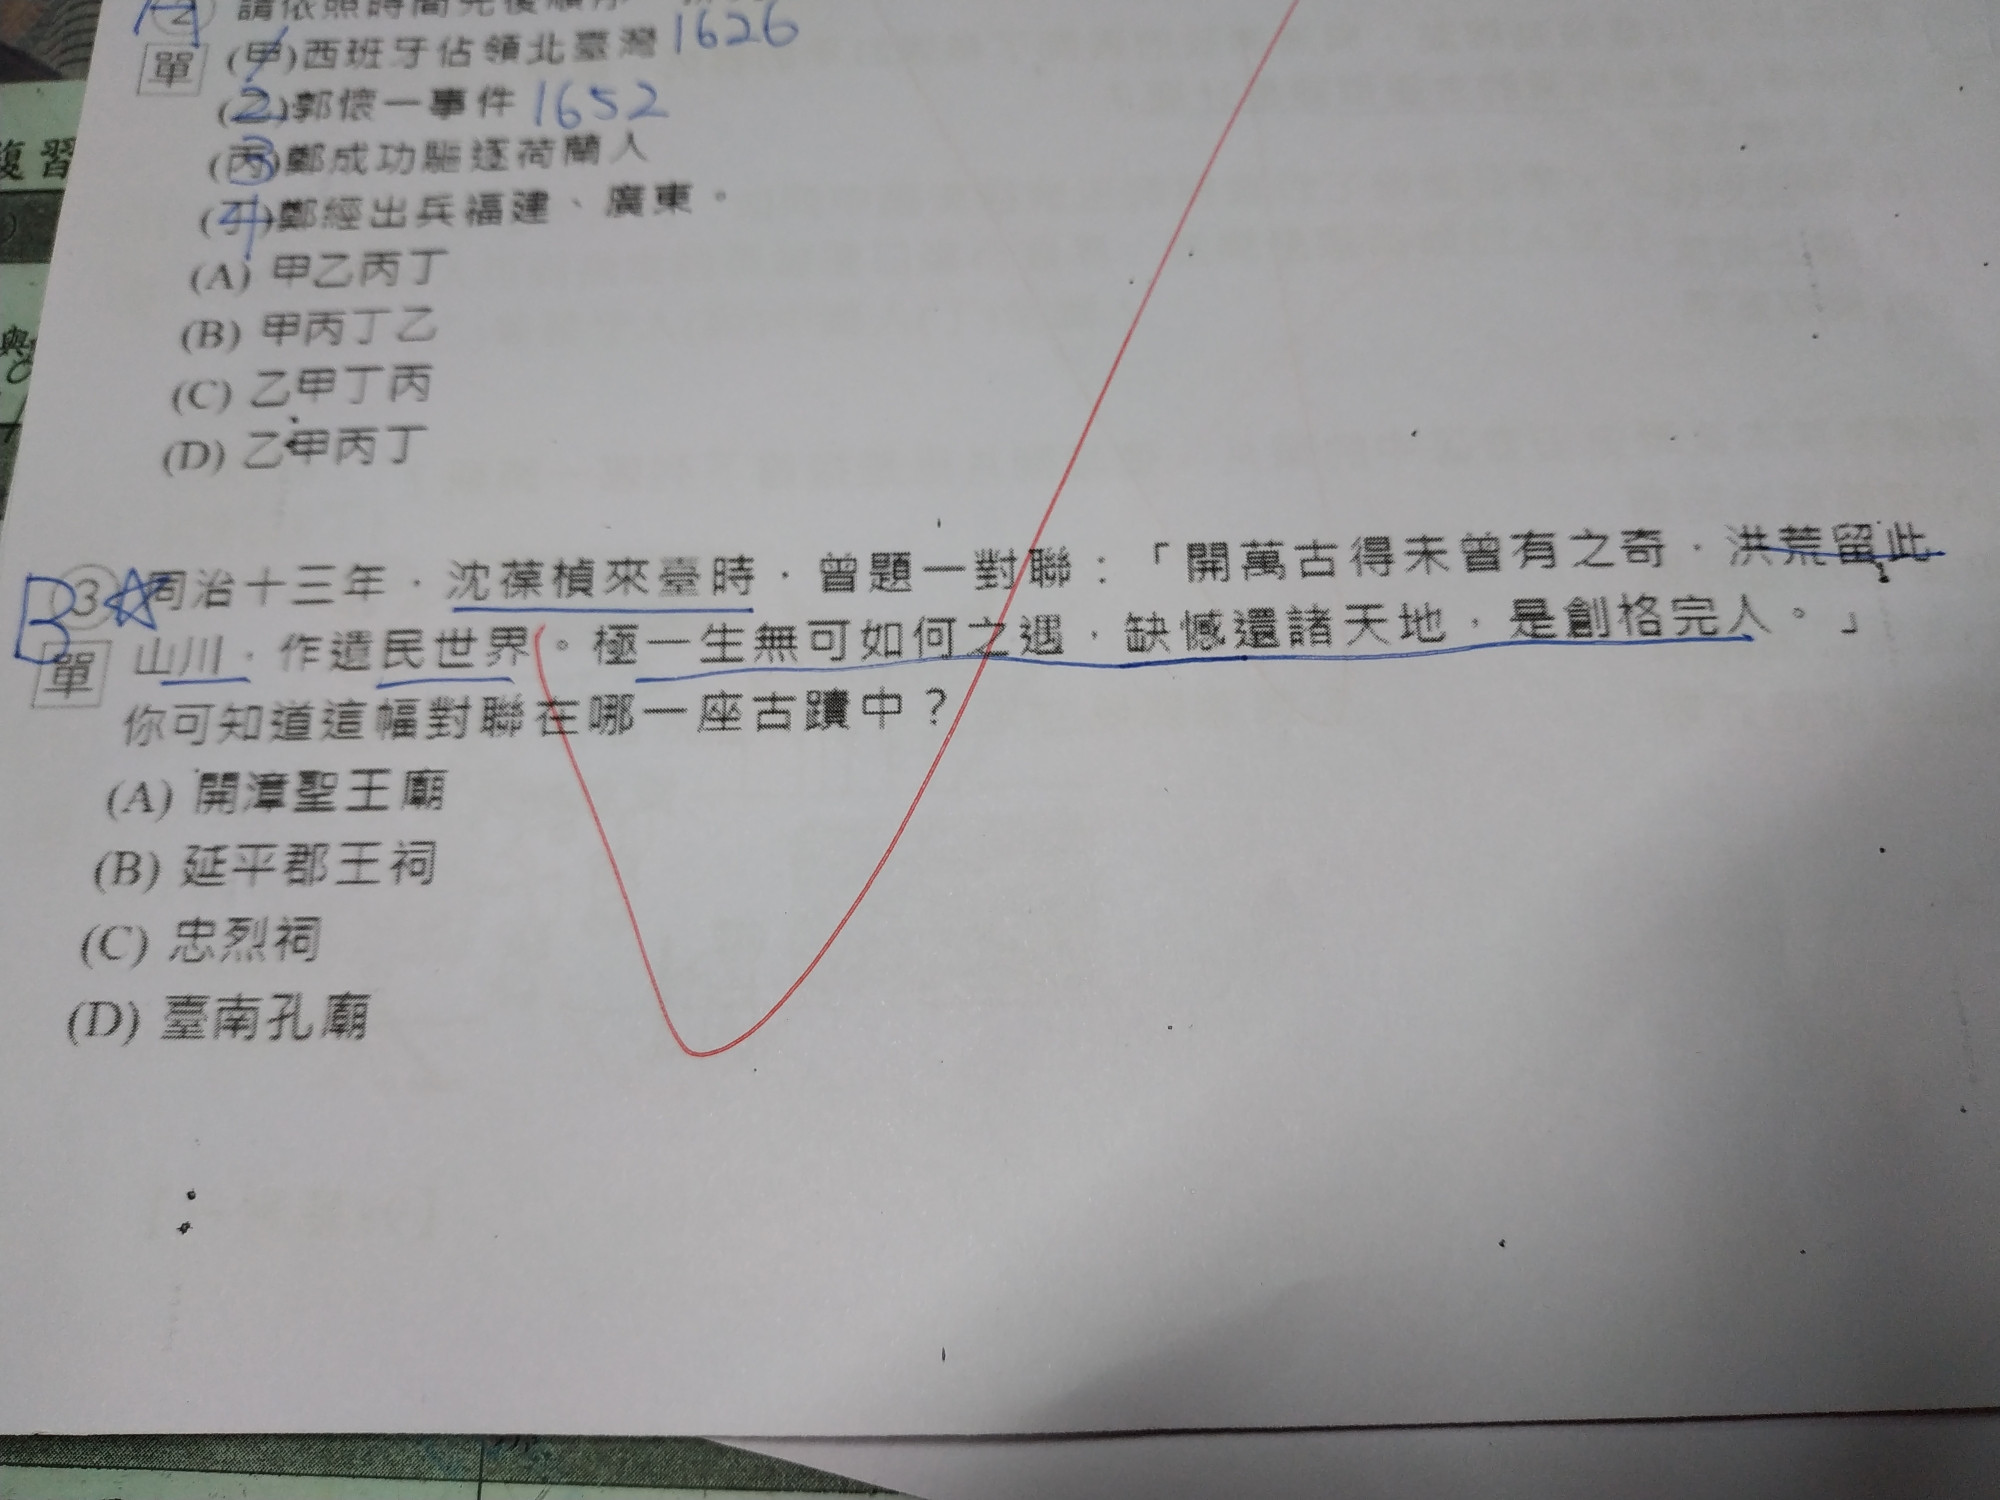 A
② 請依照時間先後順序
單 (甲)西班牙佔領北臺灣 1626
(乙)郭懷一事件 1652
(丙)鄭成功驅逐荷蘭人
(丁)鄭經出兵福建、廣東。
(A) 甲乙丙丁
(B) 甲丙丁乙
(C) 乙甲丁丙
(D) 乙甲丙丁
B ③☆同治十三年，沈葆楨來臺時，曾題一對聯：「開萬古得未曾有之奇，洪荒留此
單 山川，作遺民世界。極一生無可如何之遇，缺憾還諸天地，是創格完人。」
你可知道這幅對聯在哪一座古蹟中？
(A) 開漳聖王廟
(B) 延平郡王祠
(C) 忠烈祠
(D) 臺南孔廟
複習